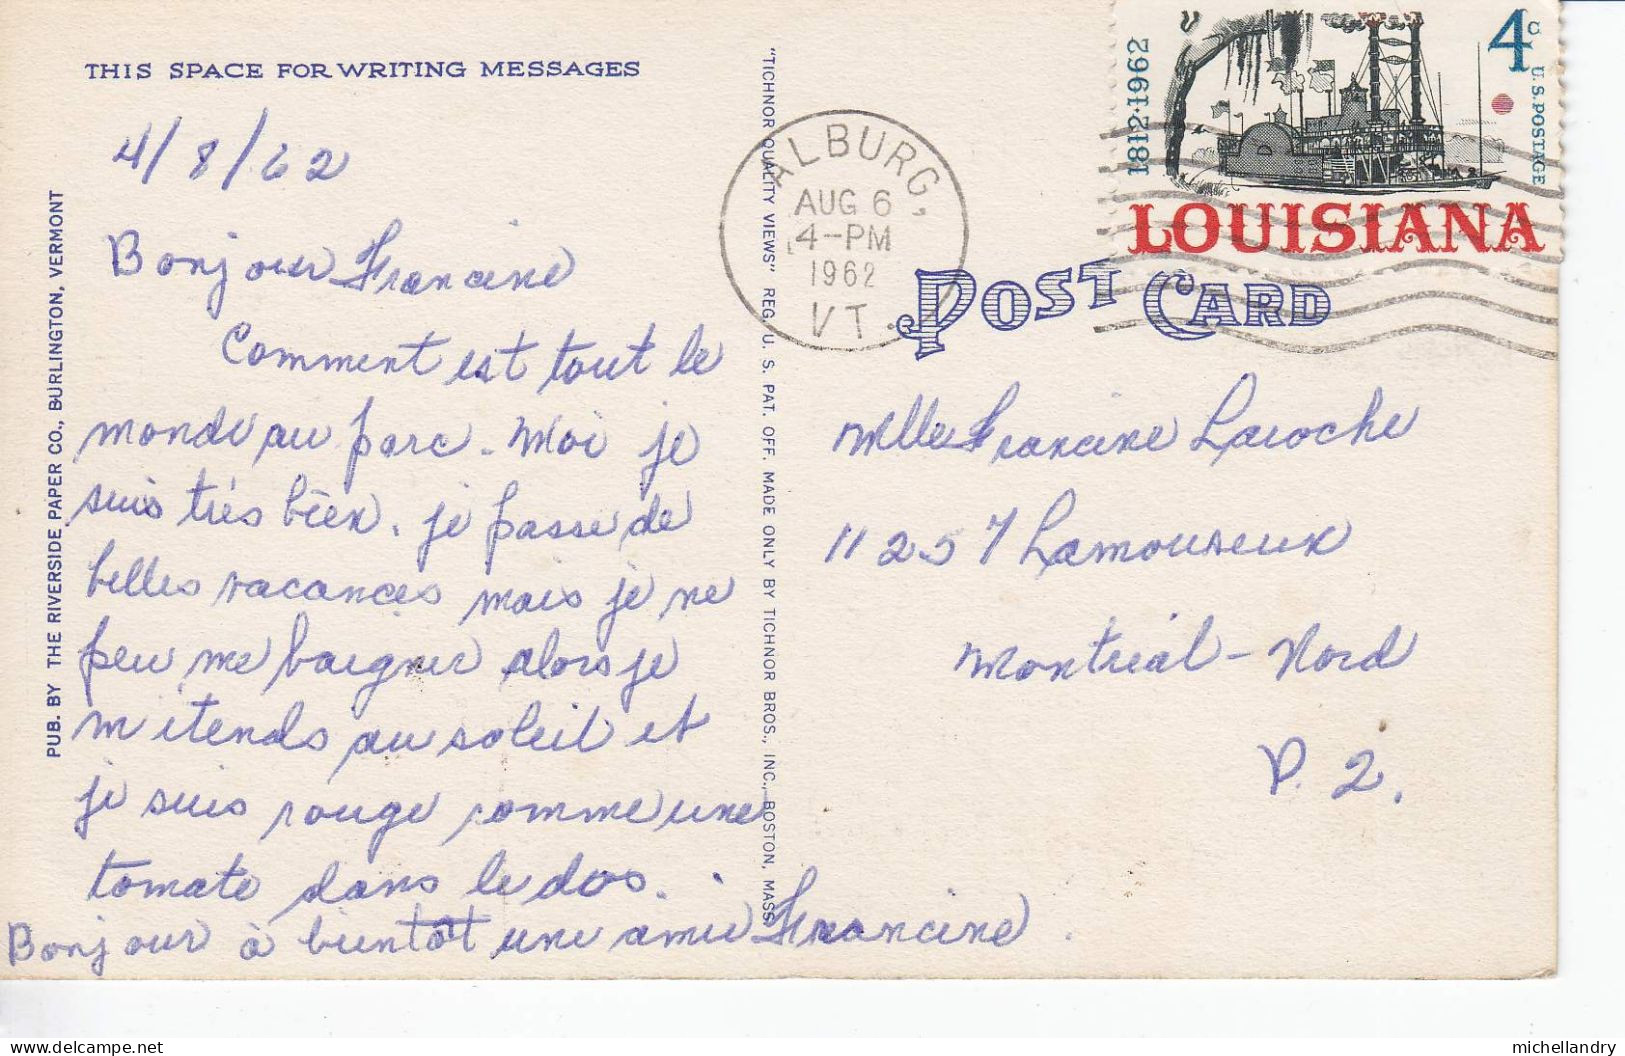 THIS SPACE FOR WRITING MESSAGES
4/8/62
Bonjour Francine
Comment est tout le
monde au parc. Moi je
suis très bien. je passe de
belles vacances mais je ne
peu me baigner alors je
m étends au soleil et
je suis rouge comme une
tomate dans le dos.
Bonjour à bientôt une amie Francine.
PUB. BY THE RIVERSIDE PAPER CO., BURLINGTON, VERMONT
"TICHNOR QUALITY VIEWS" REG. U. S. PAT. OFF. MADE ONLY BY TICHNOR BROS., INC., BOSTON, MASS.
ALBURG,
AUG 6
4-PM
1962
VT.
1812·1962
4c
U.S. POSTAGE
LOUISIANA
POST CARD
Mlle Francine Laroche
11257 Lamoureux
Montréal-Nord
P. 2.
delcampe.net
michellandry